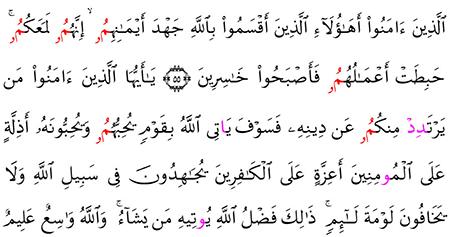 الَّذِينَ ءَامَنُواْ أَهَٰؤُلَآءِ الَّذِينَ أَقْسَمُواْ بِاللَّهِ جَهْدَ أَيْمَٰنِهِمُۥ ۙ إِنَّهُمُۥ لَمَعَكُمُۥ ۚ
حَبِطَتْ أَعْمَٰلُهُمُۥ فَأَصْبَحُواْ خَٰسِرِينَ ۝٥٥ يَٰٓأَيُّهَا الَّذِينَ ءَامَنُواْ مَن
يَرْتَدِدْ مِنكُمُۥ عَن دِينِهِۦ فَسَوْفَ يَاتِى اللَّهُ بِقَوْمٍ يُحِبُّهُمُۥ وَيُحِبُّونَهُۥٓ أَذِلَّةٍ
عَلَى الْمُومِنِينَ أَعِزَّةٍ عَلَى الْكَٰفِرِينَ يُجَٰهِدُونَ فِى سَبِيلِ اللَّهِ وَلَا
يَخَافُونَ لَوْمَةَ لَآئِمٍ ۚ ذَٰلِكَ فَضْلُ اللَّهِ يُوتِيهِ مَن يَشَآءُ ۚ وَاللَّهُ وَٰسِعٌ عَلِيمٌ